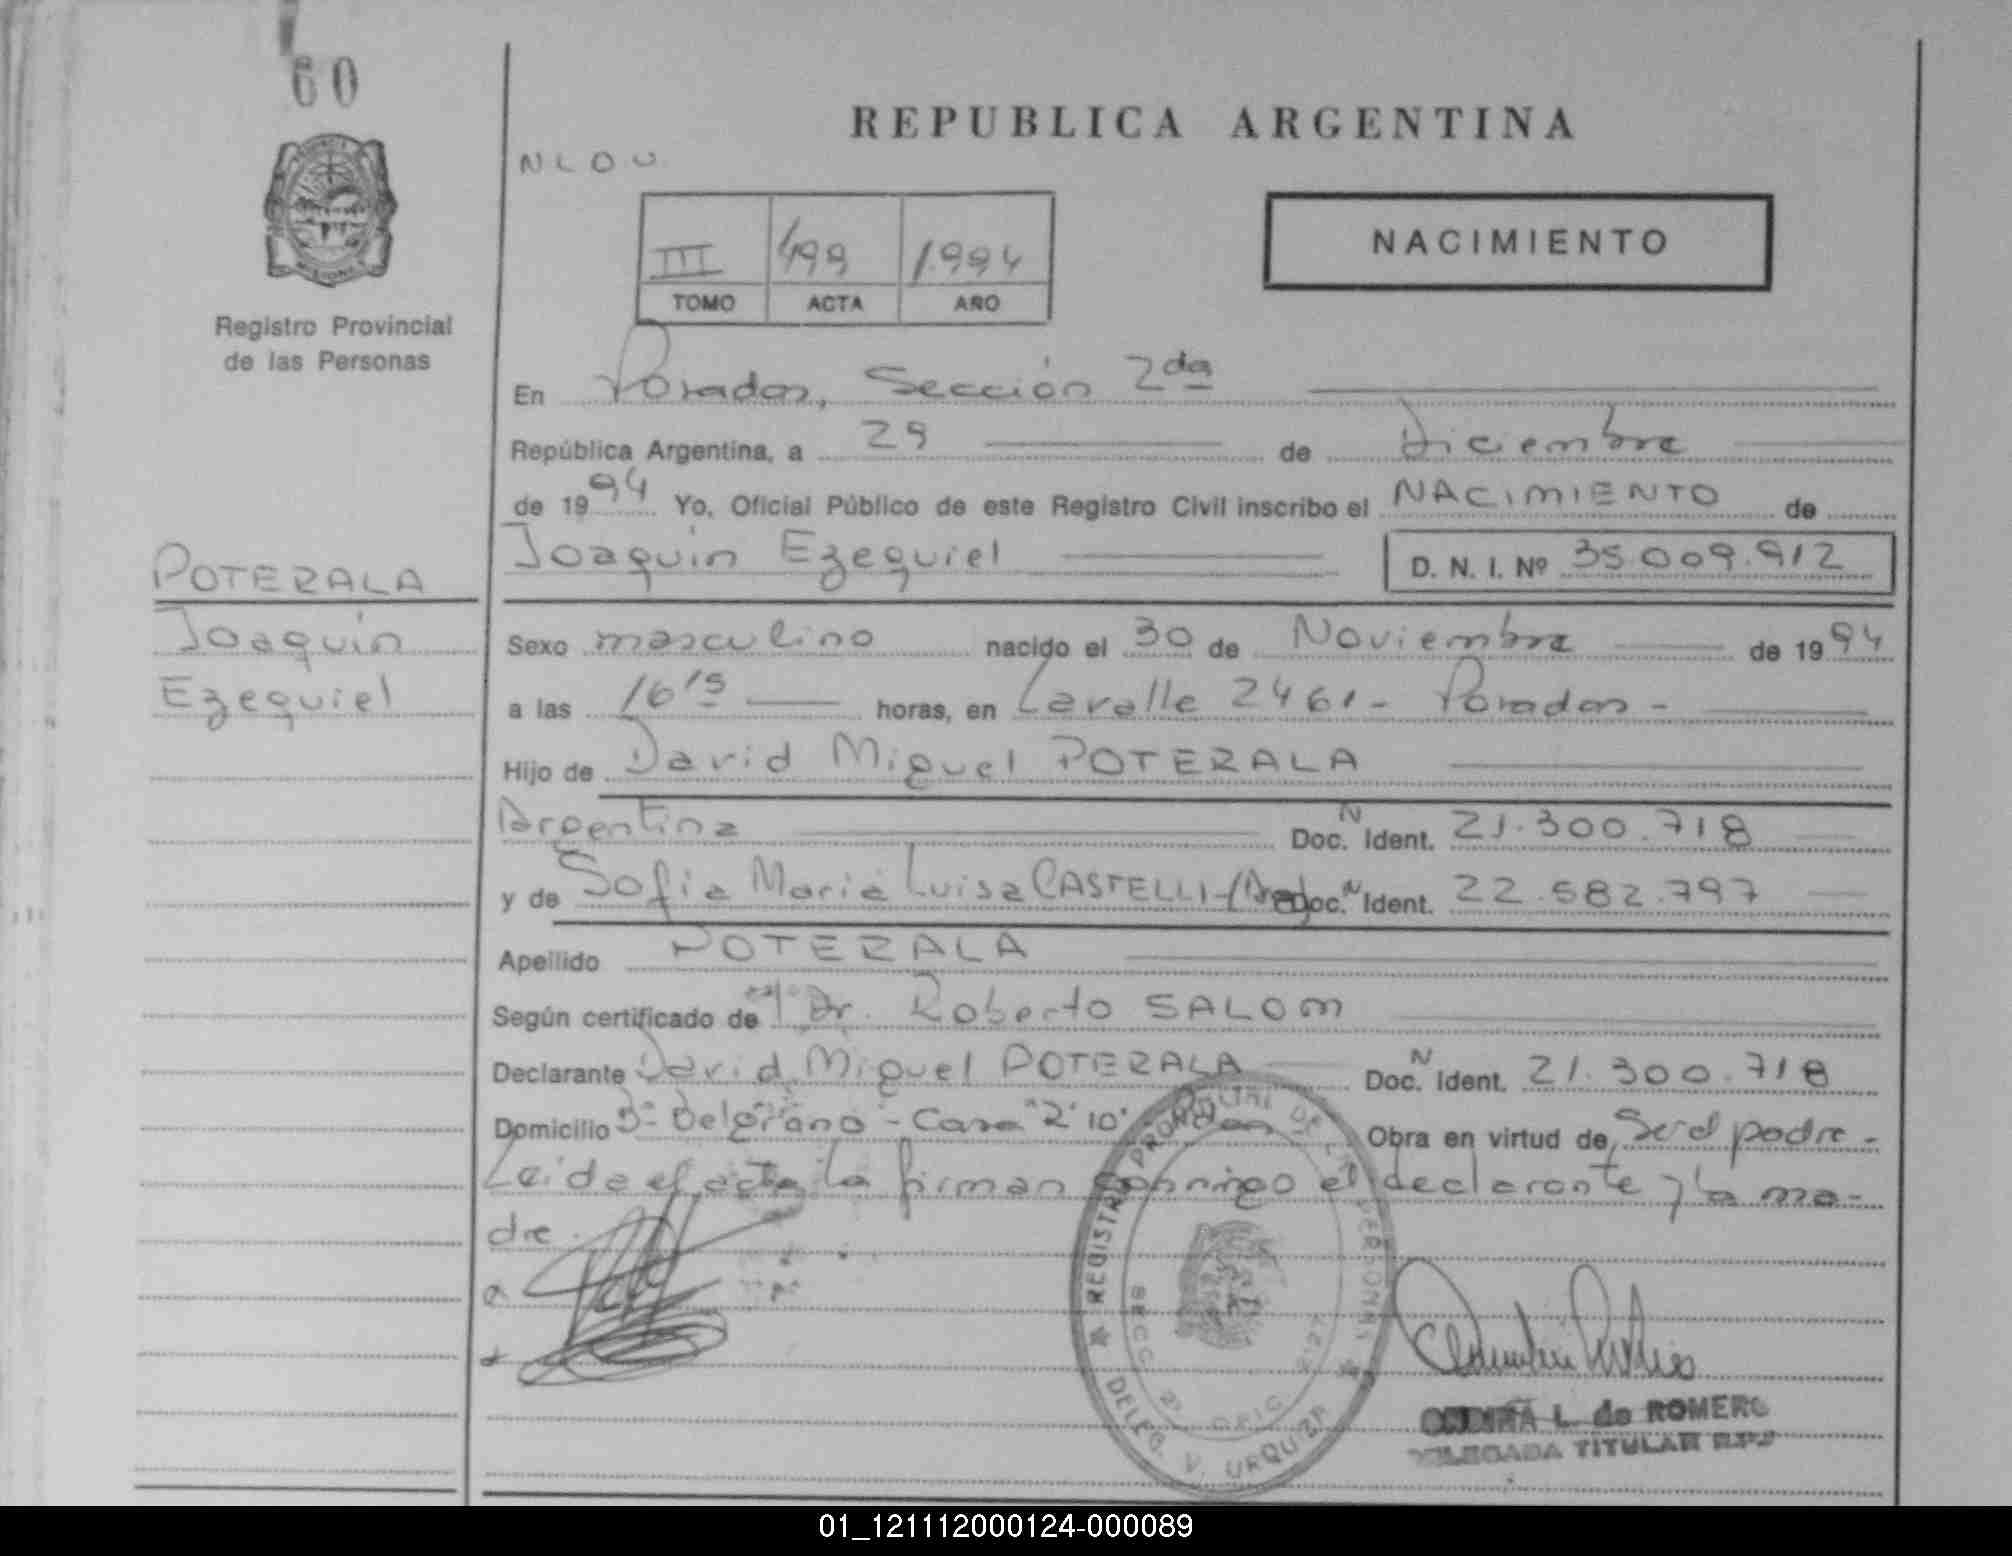 60
REPUBLICA ARGENTINA
NLOU
III 499 1.994
TOMO ACTA AÑO
NACIMIENTO
Registro Provincial
de las Personas
En Posadas, Sección 2da
República Argentina, a 29 de Diciembre
de 1994 Yo, Oficial Público de este Registro Civil inscribo el NACIMIENTO de
Joaquín Ezequiel D. N. I. Nº 35.009.912
POTERALA
Joaquín
Ezequiel
Sexo masculino nacido el 30 de Noviembre de 1994
a las 16,15 horas, en Lavalle 2461 - Posadas -
Hijo de David Miguel POTERALA
Argentina Doc. N Ident. 21.300.718
y de Sofia Maria Luisa CASTELLI - (Arg) Doc. N Ident. 22.582.797
Apellido POTERALA
Según certificado de Dr. Roberto SALOM
Declarante David Miguel POTERALA Doc. N Ident. 21.300.718
Domicilio Bº Belgrano - Casa "2" 10" Obra en virtud de Ser el padre -
Leida el acta la firman conmigo el declarante y la ma-
dre.
REGISTRO PROVINCIAL DE LAS PERSONAS
SECC 2º OFIC
DELEG. V. URQUIZA
L. de ROMERO
DELEGADA TITULAR R.P.P
01_121112000124-000089